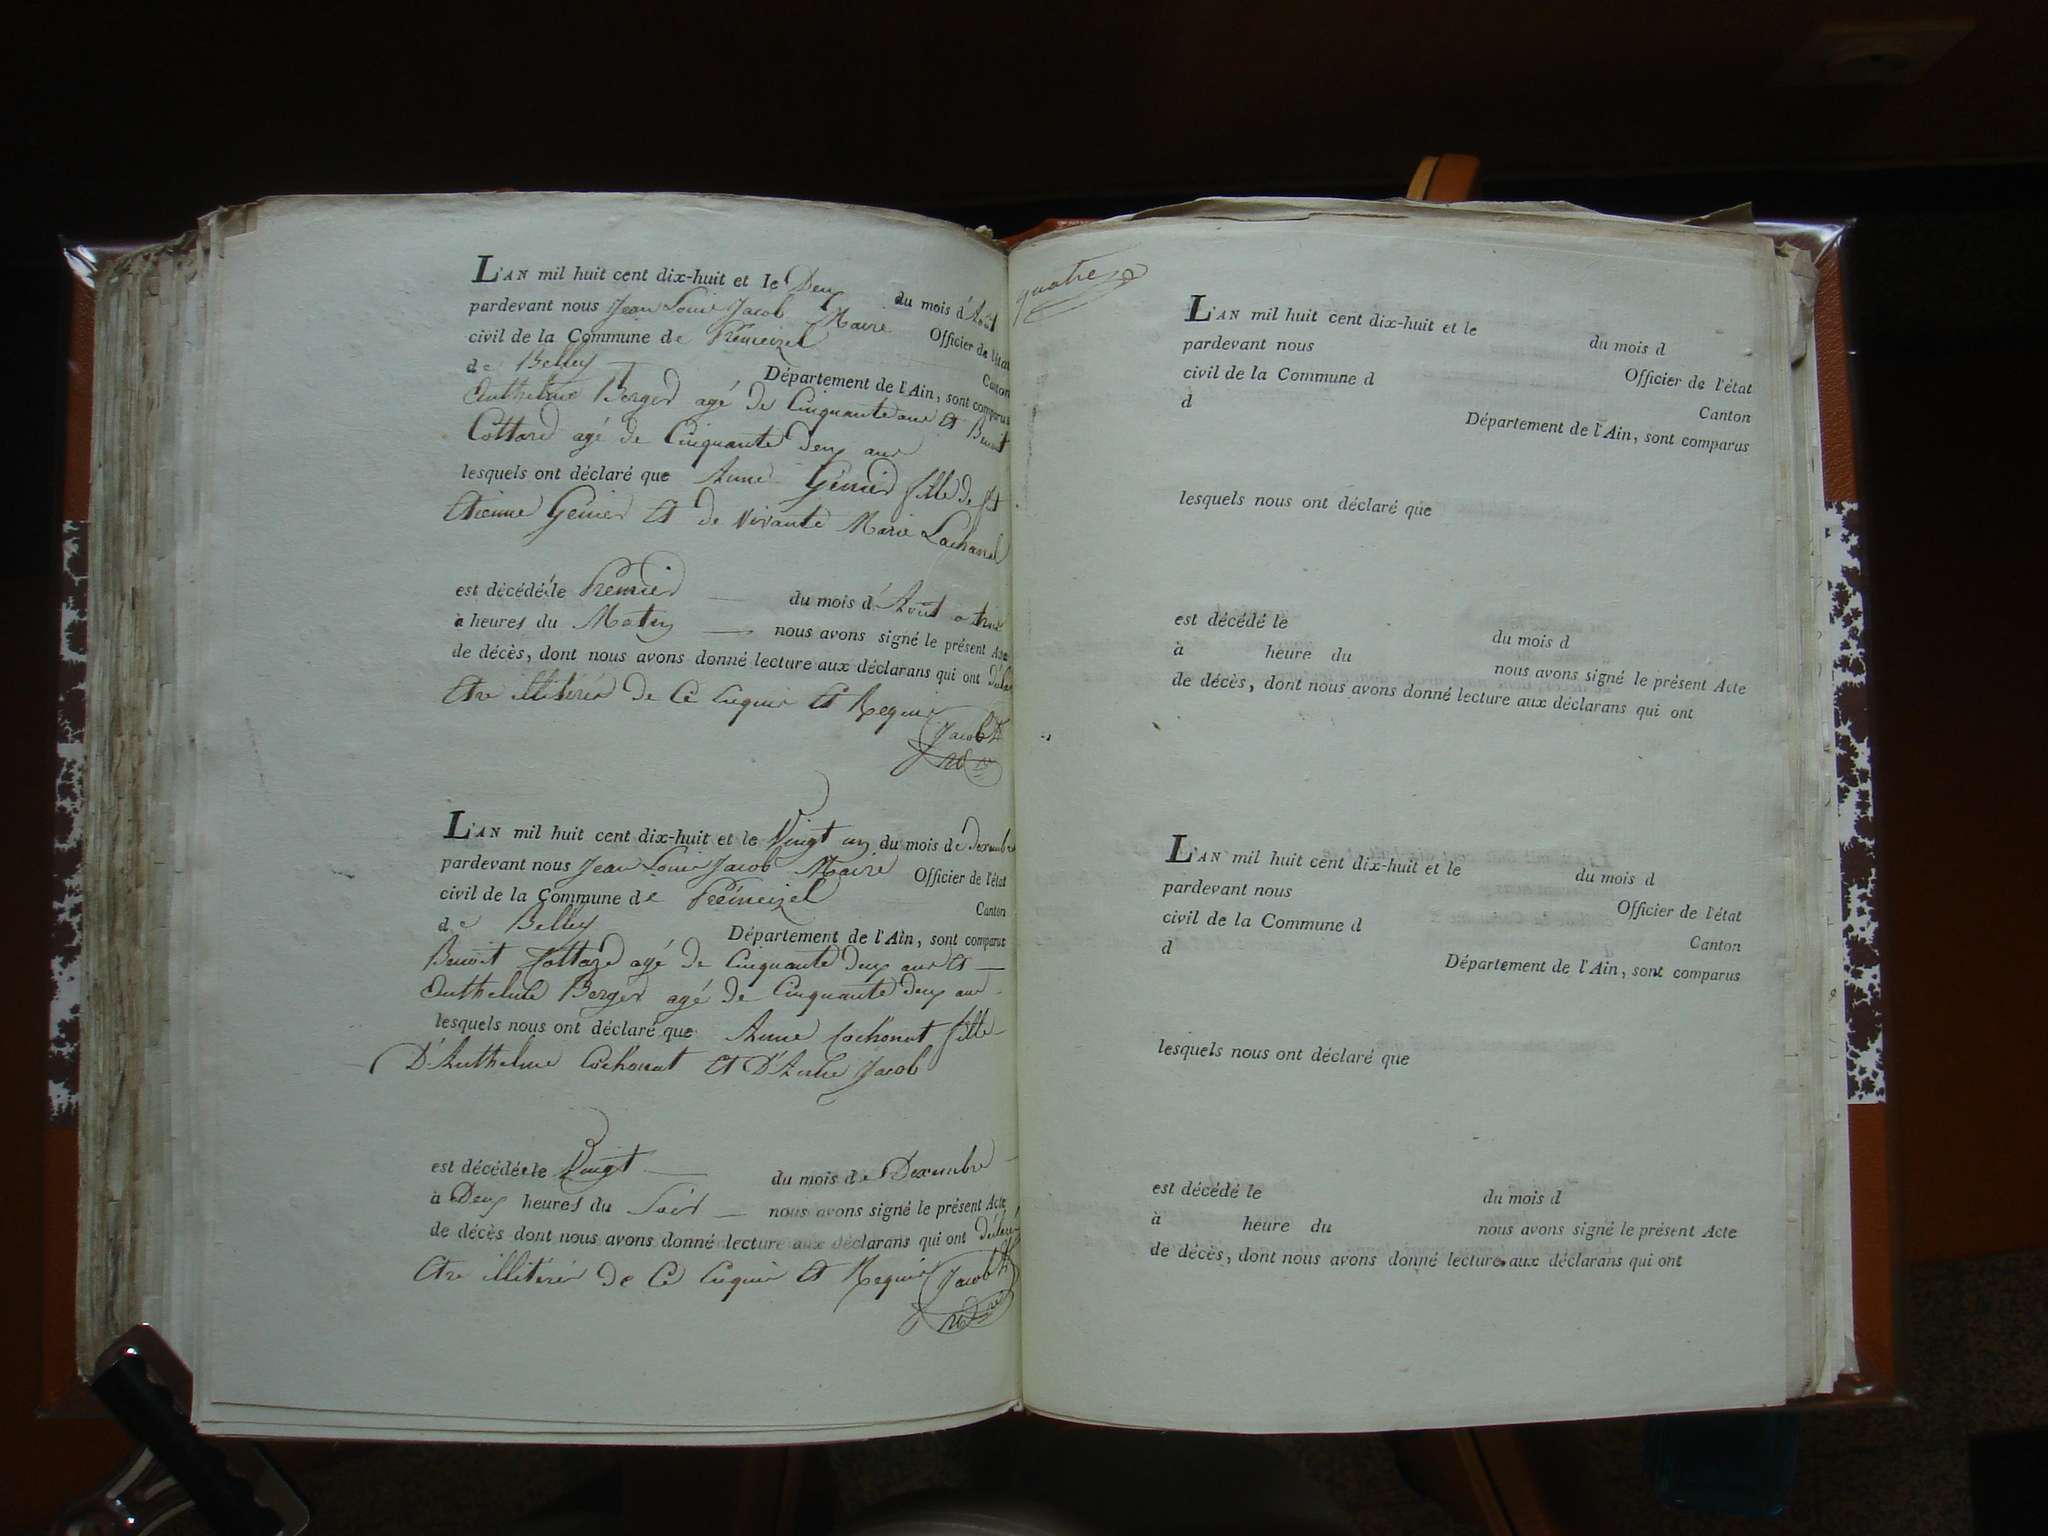 L'AN mil huit cent dix-huit et le Deux du mois d'Août
pardevant nous Jean Louis Jacob Maire Officier de l'état
civil de la Commune de Prémeizel Canton
de Belley Département de l'Ain, sont comparus
Anthelme Berger agé de Cinquante ans et Benoit
Cottard agé de Cinquante Deux ans
lesquels ont déclaré que Anne Génier fille de ft
Etienne Génier et de vivante Marie
est décédée le Premier du mois d'Août a trois
à heures du Matin nous avons signé le présent Acte
de décès, dont nous avons donné lecture aux déclarans qui ont
Etre illitérés de Ce Enquis et Requis
Jacob
L'AN mil huit cent dix-huit et le Vingt un du mois de Dexembre
pardevant nous Jean Louis Jacob Maire Officier de l'état
civil de la Commune de Prémeizel Canton
de Belley Département de l'Ain, sont comparus
Benoit agé de Cinquante Deux ans et
Anthelme Berger agé de Cinquante Deux ans
lesquels nous ont déclaré que Anne Cochonat fille
D'Anthelme Cochonat et D'Anne Jacob
est décédée le Vingt du mois de Dexembre
à Deux heures du Soir nous avons signé le présent Acte
de décès dont nous avons donné lecture aux déclarans qui ont déclaré
Etre illitérés de Ce Enquis et Requis Jacob
quatre
L'AN mil huit cent dix-huit et le du mois d
pardevant nous Officier de l'état
civil de la Commune d Canton
d Département de l'Ain, sont comparus
lesquels nous ont déclaré que
est décédé le du mois d
à heure du nous avons signé le présent Acte
de décès, dont nous avons donné lecture aux déclarans qui ont
L'AN mil huit cent dix-huit et le du mois d
pardevant nous Officier de l'état
civil de la Commune d Canton
d Département de l'Ain, sont comparus
lesquels nous ont déclaré que
est décédé le du mois d
à heure du nous avons signé le présent Acte
de décès, dont nous avons donné lecture aux déclarans qui ont